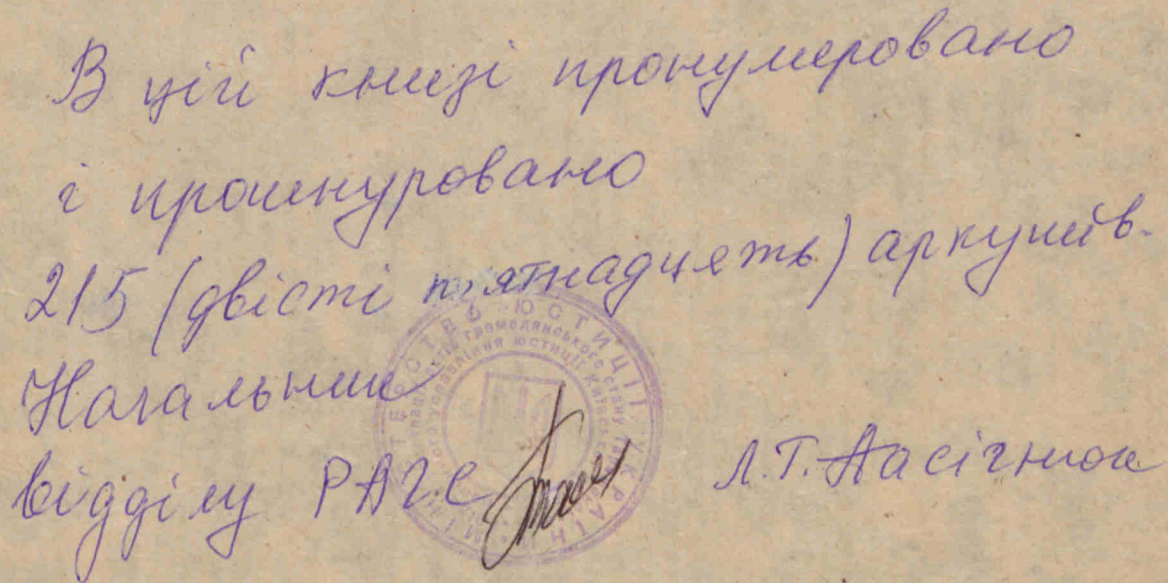 В цій книзі пронумеровано
і прошнуровано
215 (двісті п'ятнадцять) аркушів.
Начальник
відділу РАГС Л.Т.Пасічнюк
МІНІСТЕРСТВО ЮСТИЦІЇ УКРАЇНИ
громадянського стану
управління юстиції